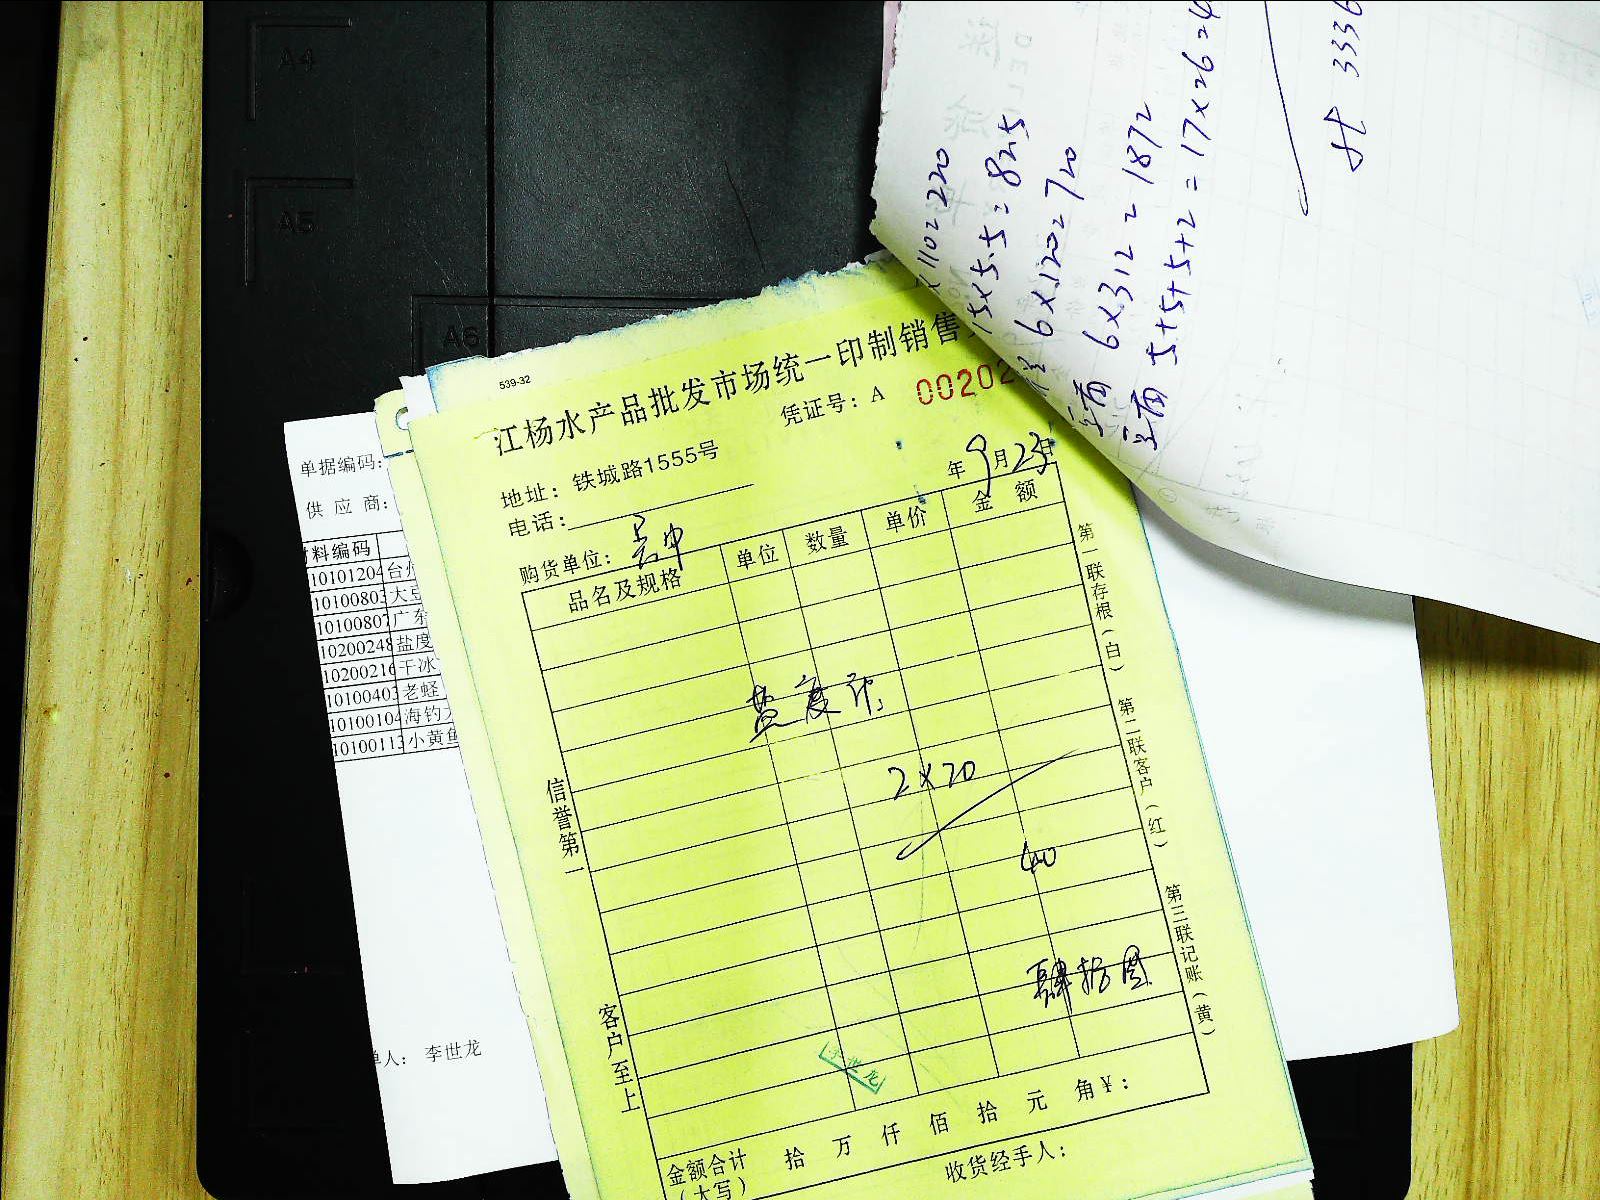 A4
A5
A6
539-32
江杨水产品批发市场统一印制销售
凭证号：A 00202
地址：铁城路1555号
电话：
年9月23日
购货单位：
品名及规格 单位 数量 单价 金额
盐度计
2×20
40
肆拾圆
李世龙
金额合计 拾 万 仟 佰 拾 元 角 ¥：
（大写）
收货经手人：
信誉第一
客户至上
第一联存根（白）
第二联客户（红）
第三联记账（黄）
单据编码：
供应商：
料编码
10101204 台州
10100803 大豆
10100807 广东
10200248 盐度
10200216 干冰
10100403 老蛏
10100104 海钓
10100113 小黄鱼
单人： 李世龙
×110=220
15×5.5=825
6×120=720
6×312=1872
5+5+5+2=17×26=4
3336